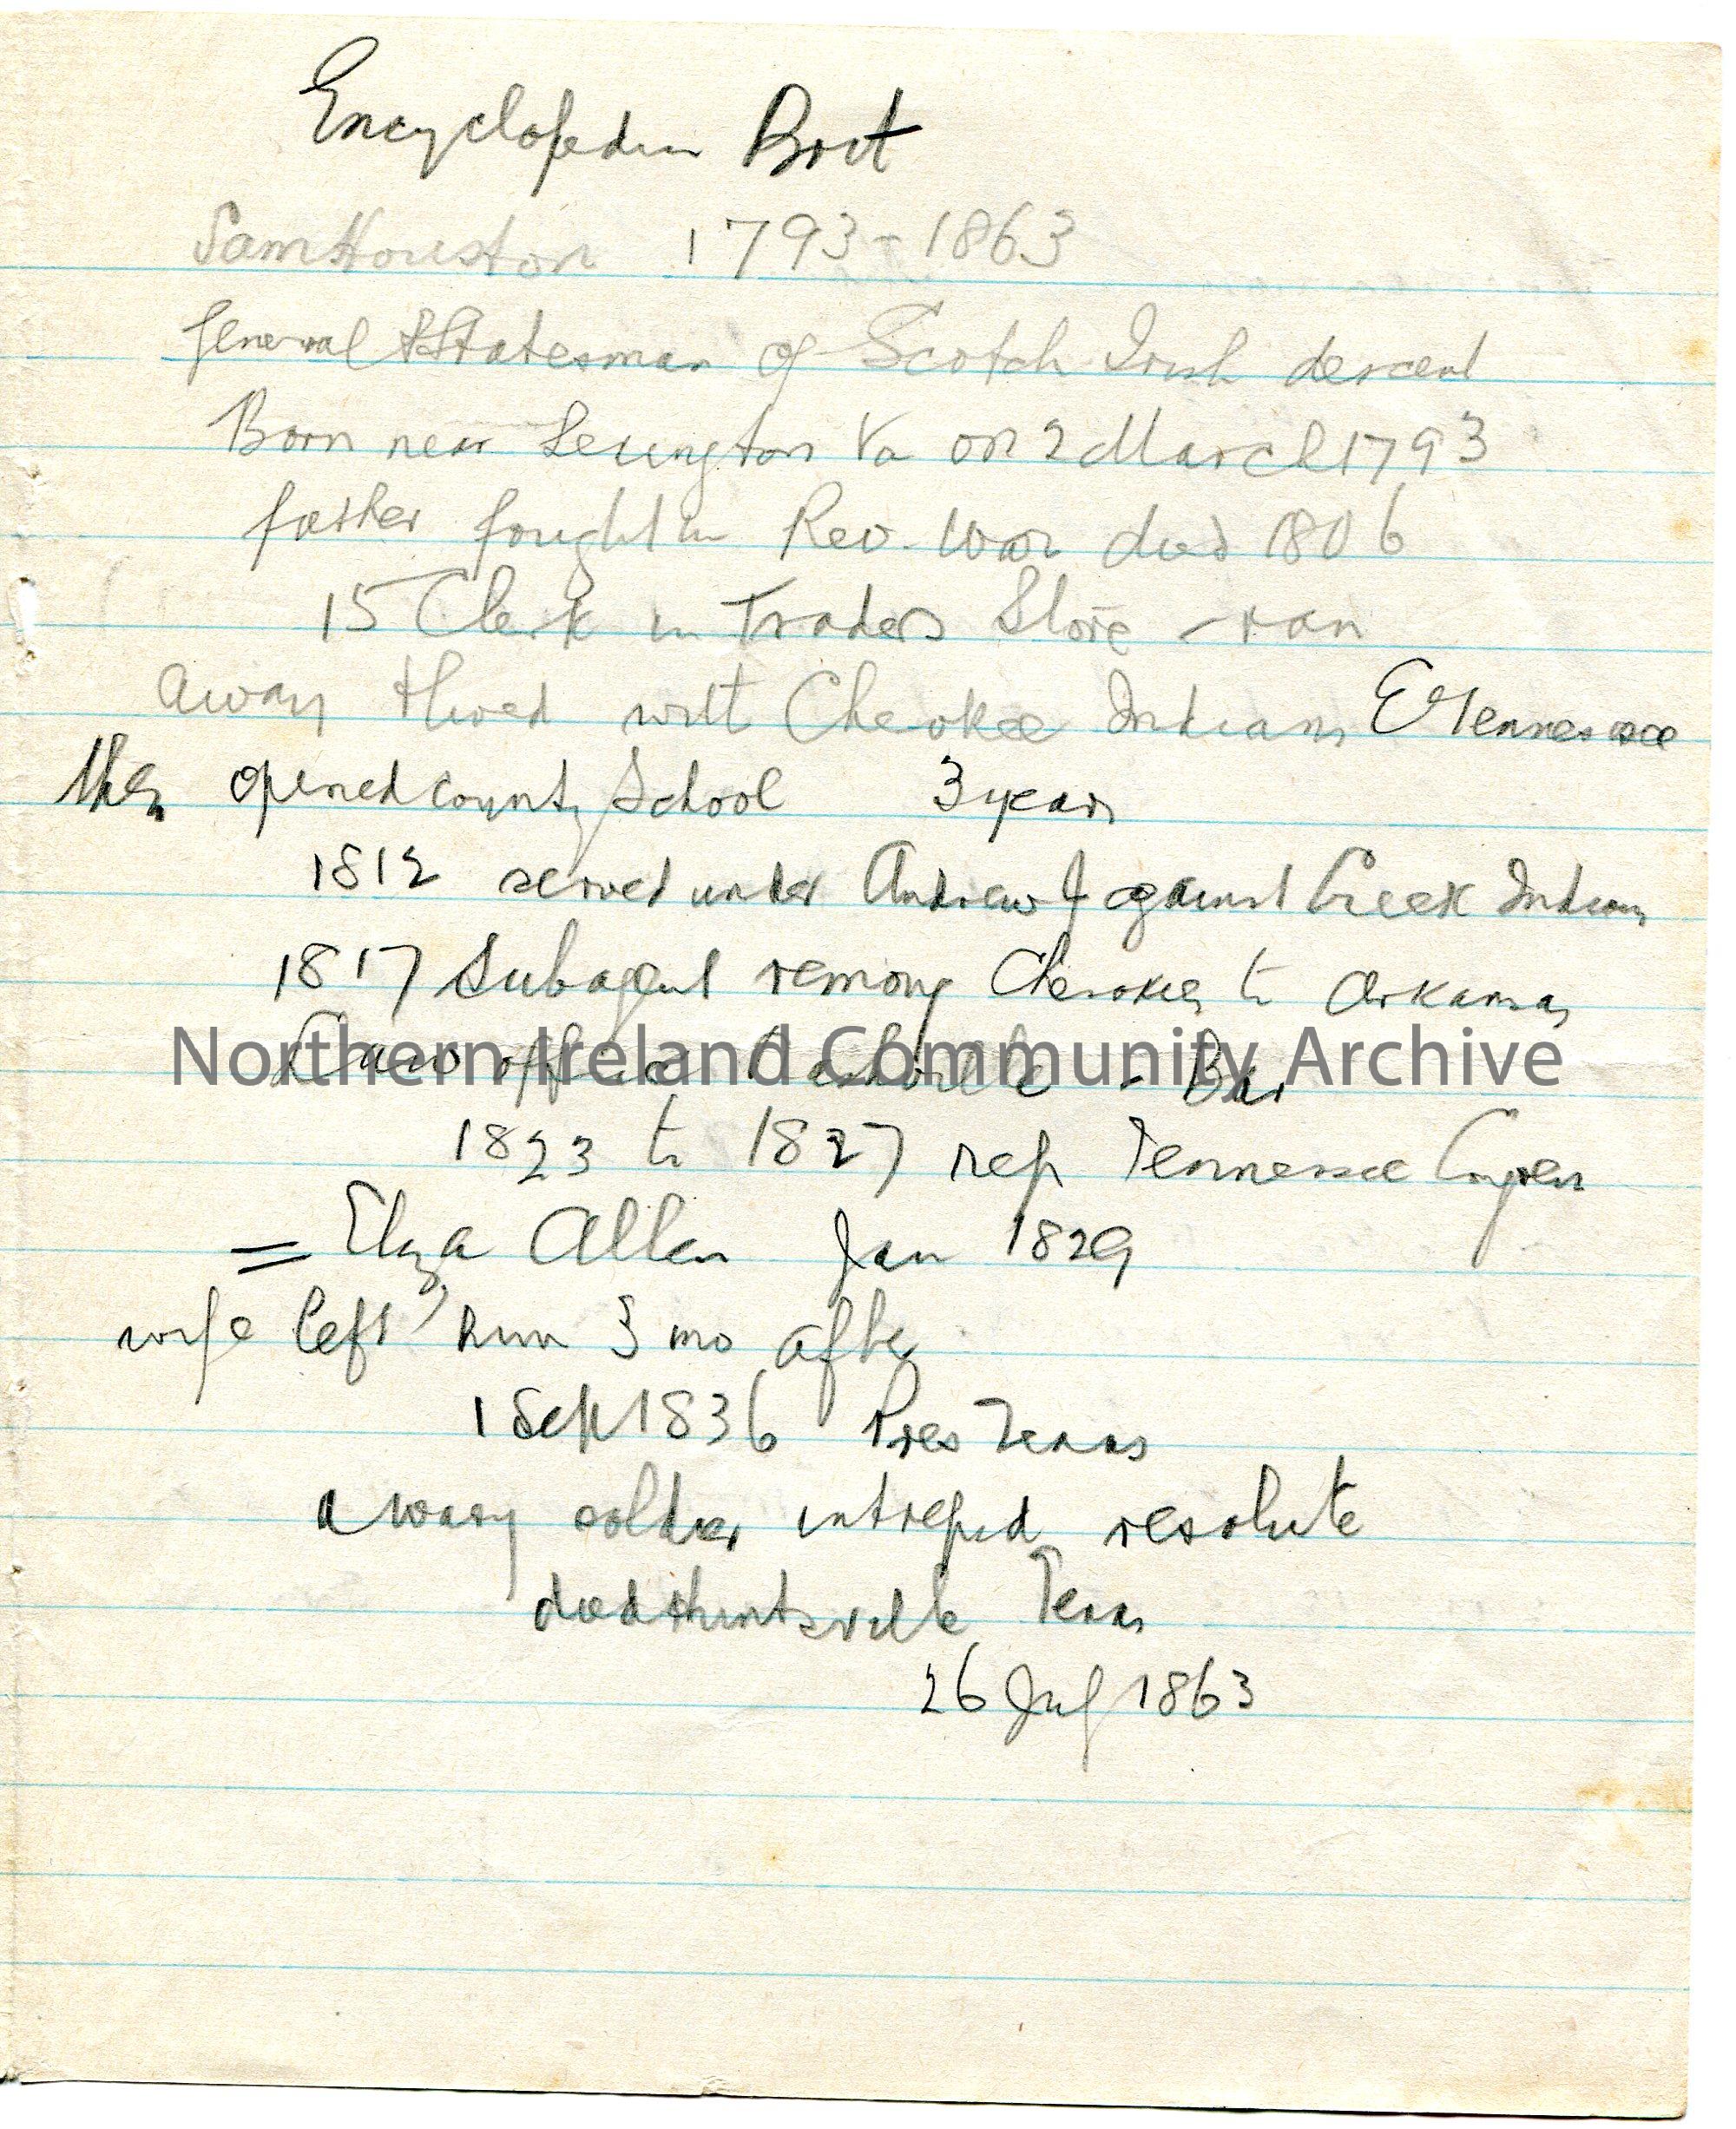 Encyclopedia Brit
Sam Houston 1793-1863
General & Statesman of Scotch Irish descent
Born near Lexington Va on 2 March 1793
father fought in Rev. War died 1806
15 Clerk in Traders Store - ran
away & lived with Cherokee Indians E Tennessee
then opened county School 3 years
1812 served under Andrew J against Creek Indians
1817 Subagent removing Cherokees to Arkansas
Northern Ireland Community Archive
Law office Nashville - Bar
1823 to 1827 rep Tennessee Congress
= Eliza Allen Jan 1829
wife left him 3 mo after
1 Sept 1836 Pres Texas
a wary soldier intrepid resolute
died Huntsville Texas
26 July 1863